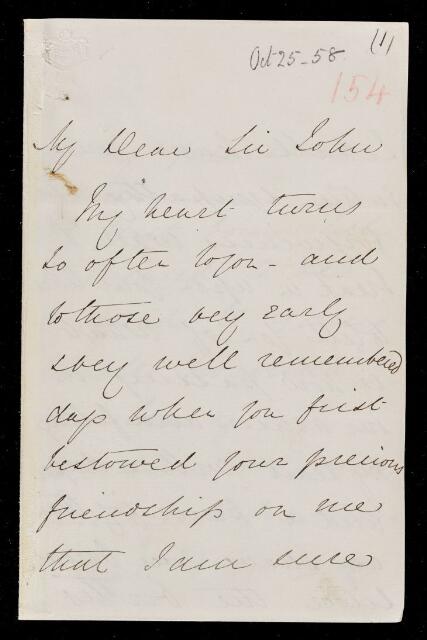 (1)
Oct 25-58
154
My Dear Sir John
My heart turns
so often to you - and
to those very early
& very well remembered
days when you first
bestowed your precious
friendship on me
that I am sure